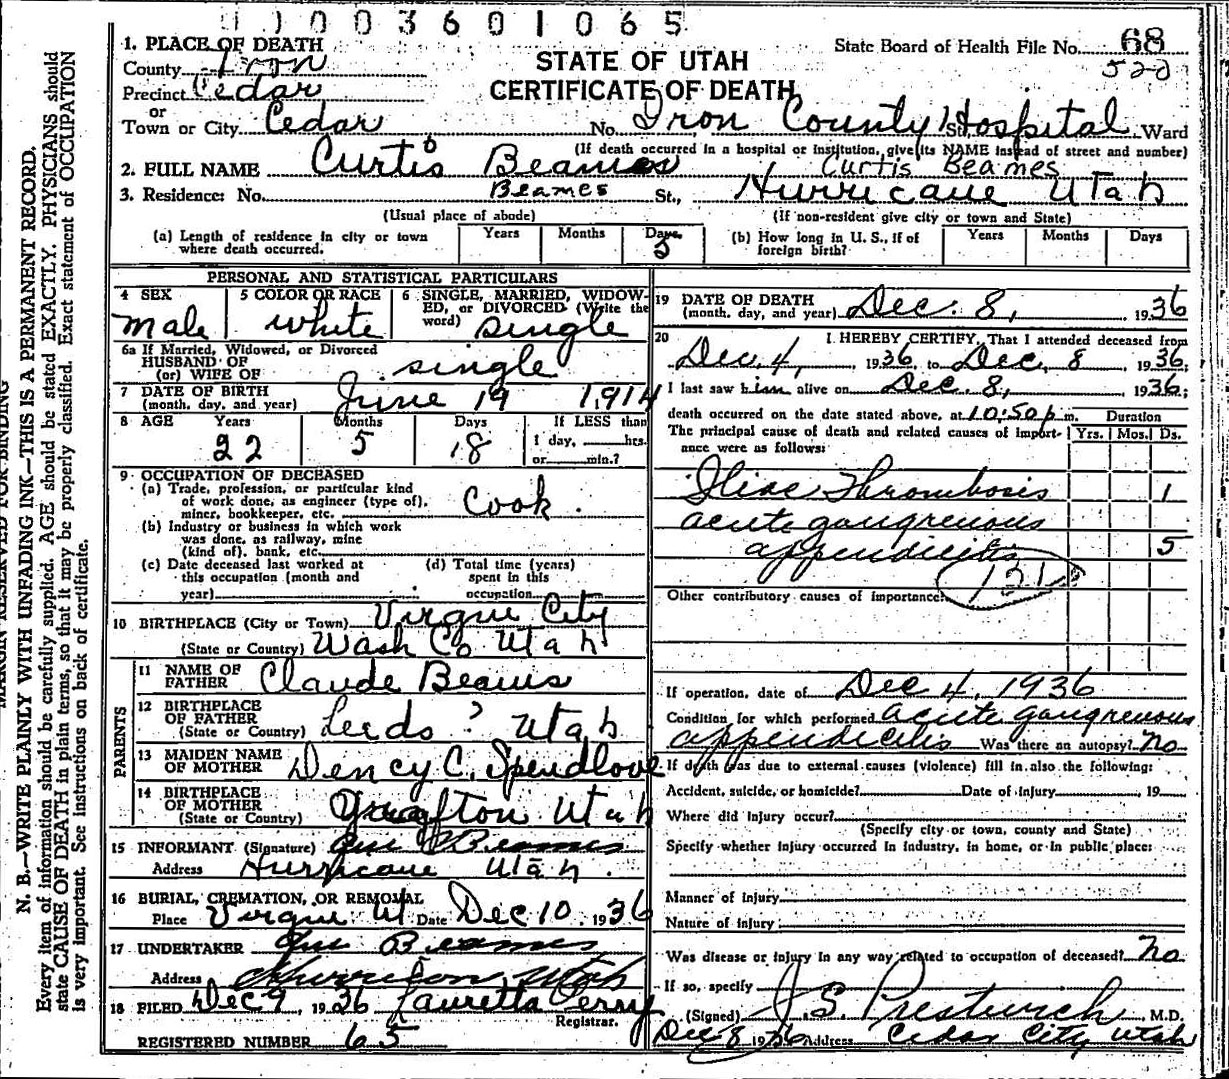 11003601065
1. PLACE OF DEATH
County Iron
Precinct Cedar
or
Town or City Cedar
STATE OF UTAH
CERTIFICATE OF DEATH
State Board of Health File No. 68
522
No. Iron County Hospital St., Ward
(If death occurred in a hospital or institution, give its NAME instead of street and number)
2. FULL NAME Curtis Beames Curtis Beames
3. Residence: No. Beames St., Hurricane Utah
(Usual place of abode) (If non-resident give city or town and State)
(a) Length of residence in city or town where death occurred. Years Months Days 5
(b) How long in U. S., if of foreign birth? Years Months Days
PERSONAL AND STATISTICAL PARTICULARS
4 SEX male
5 COLOR OR RACE white
6 SINGLE, MARRIED, WIDOWED, or DIVORCED (Write the word) single
6a If Married, Widowed, or Divorced
HUSBAND OF
(or) WIFE OF single
7 DATE OF BIRTH
(month, day, and year) June 19 1914
8 AGE Years 22 Months 5 Days 18 If LESS than
1 day, hrs.
or min.?
9 OCCUPATION OF DECEASED
(a) Trade, profession, or particular kind
of work done, as engineer (type of),
miner, bookkeeper, etc. Cook.
(b) Industry or business in which work
was done, as railway, mine
(kind of), bank, etc.
(c) Date deceased last worked at
this occupation (month and
year)
(d) Total time (years)
spent in this
occupation
10 BIRTHPLACE (City or Town) Virgin City
(State or Country) Wash Co Utah
PARENTS
11 NAME OF
FATHER Claude Beams
12 BIRTHPLACE
OF FATHER
(State or Country) Leeds ? Utah
13 MAIDEN NAME
OF MOTHER Dency C. Spendlove
14 BIRTHPLACE
OF MOTHER
(State or Country) Grafton Utah
15 INFORMANT (Signature) Beames
Address Hurricane Utah.
16 BURIAL, CREMATION, OR REMOVAL
Place Virgin Ut Date Dec 10, 1936
17 UNDERTAKER Beames
Address Utah
18 FILED Dec 9, 1936 Lauretta Perry
Registrar.
REGISTERED NUMBER 65
19 DATE OF DEATH
(month, day, and year) Dec. 8, 1936
20 I HEREBY CERTIFY, That I attended deceased from
Dec. 4, 1936, to Dec. 8 1936;
I last saw him alive on Dec. 8, 1936;
death occurred on the date stated above, at 10:50 p m. Duration
The principal cause of death and related causes of importance were as follows: Yrs. Mos. Ds.
Iliac Thrombosis 1
acute gangrenous
appendicitis 5
121
Other contributory causes of importance:
If operation, date of Dec 4, 1936
Condition for which performed acute gangrenous
appendicitis Was there an autopsy? No
If death was due to external causes (violence) fill in also the following:
Accident, suicide, or homicide? Date of injury , 19
Where did injury occur?
(Specify city or town, county and State)
Specify whether injury occurred in industry, in home, or in public place:
Manner of injury
Nature of injury
Was disease or injury in any way related to occupation of deceased? No
If so, specify
(Signed) J. S. Prestwich, M.D.
Dec 8 1936 Address Cedar City Utah
MARGIN RESERVED FOR BINDING
N. B.—WRITE PLAINLY WITH UNFADING INK—THIS IS A PERMANENT RECORD.
Every item of information should be carefully supplied. AGE should be stated EXACTLY. PHYSICIANS should
state CAUSE OF DEATH in plain terms, so that it may be properly classified. Exact statement of OCCUPATION
is very important. See instructions on back of certificate.